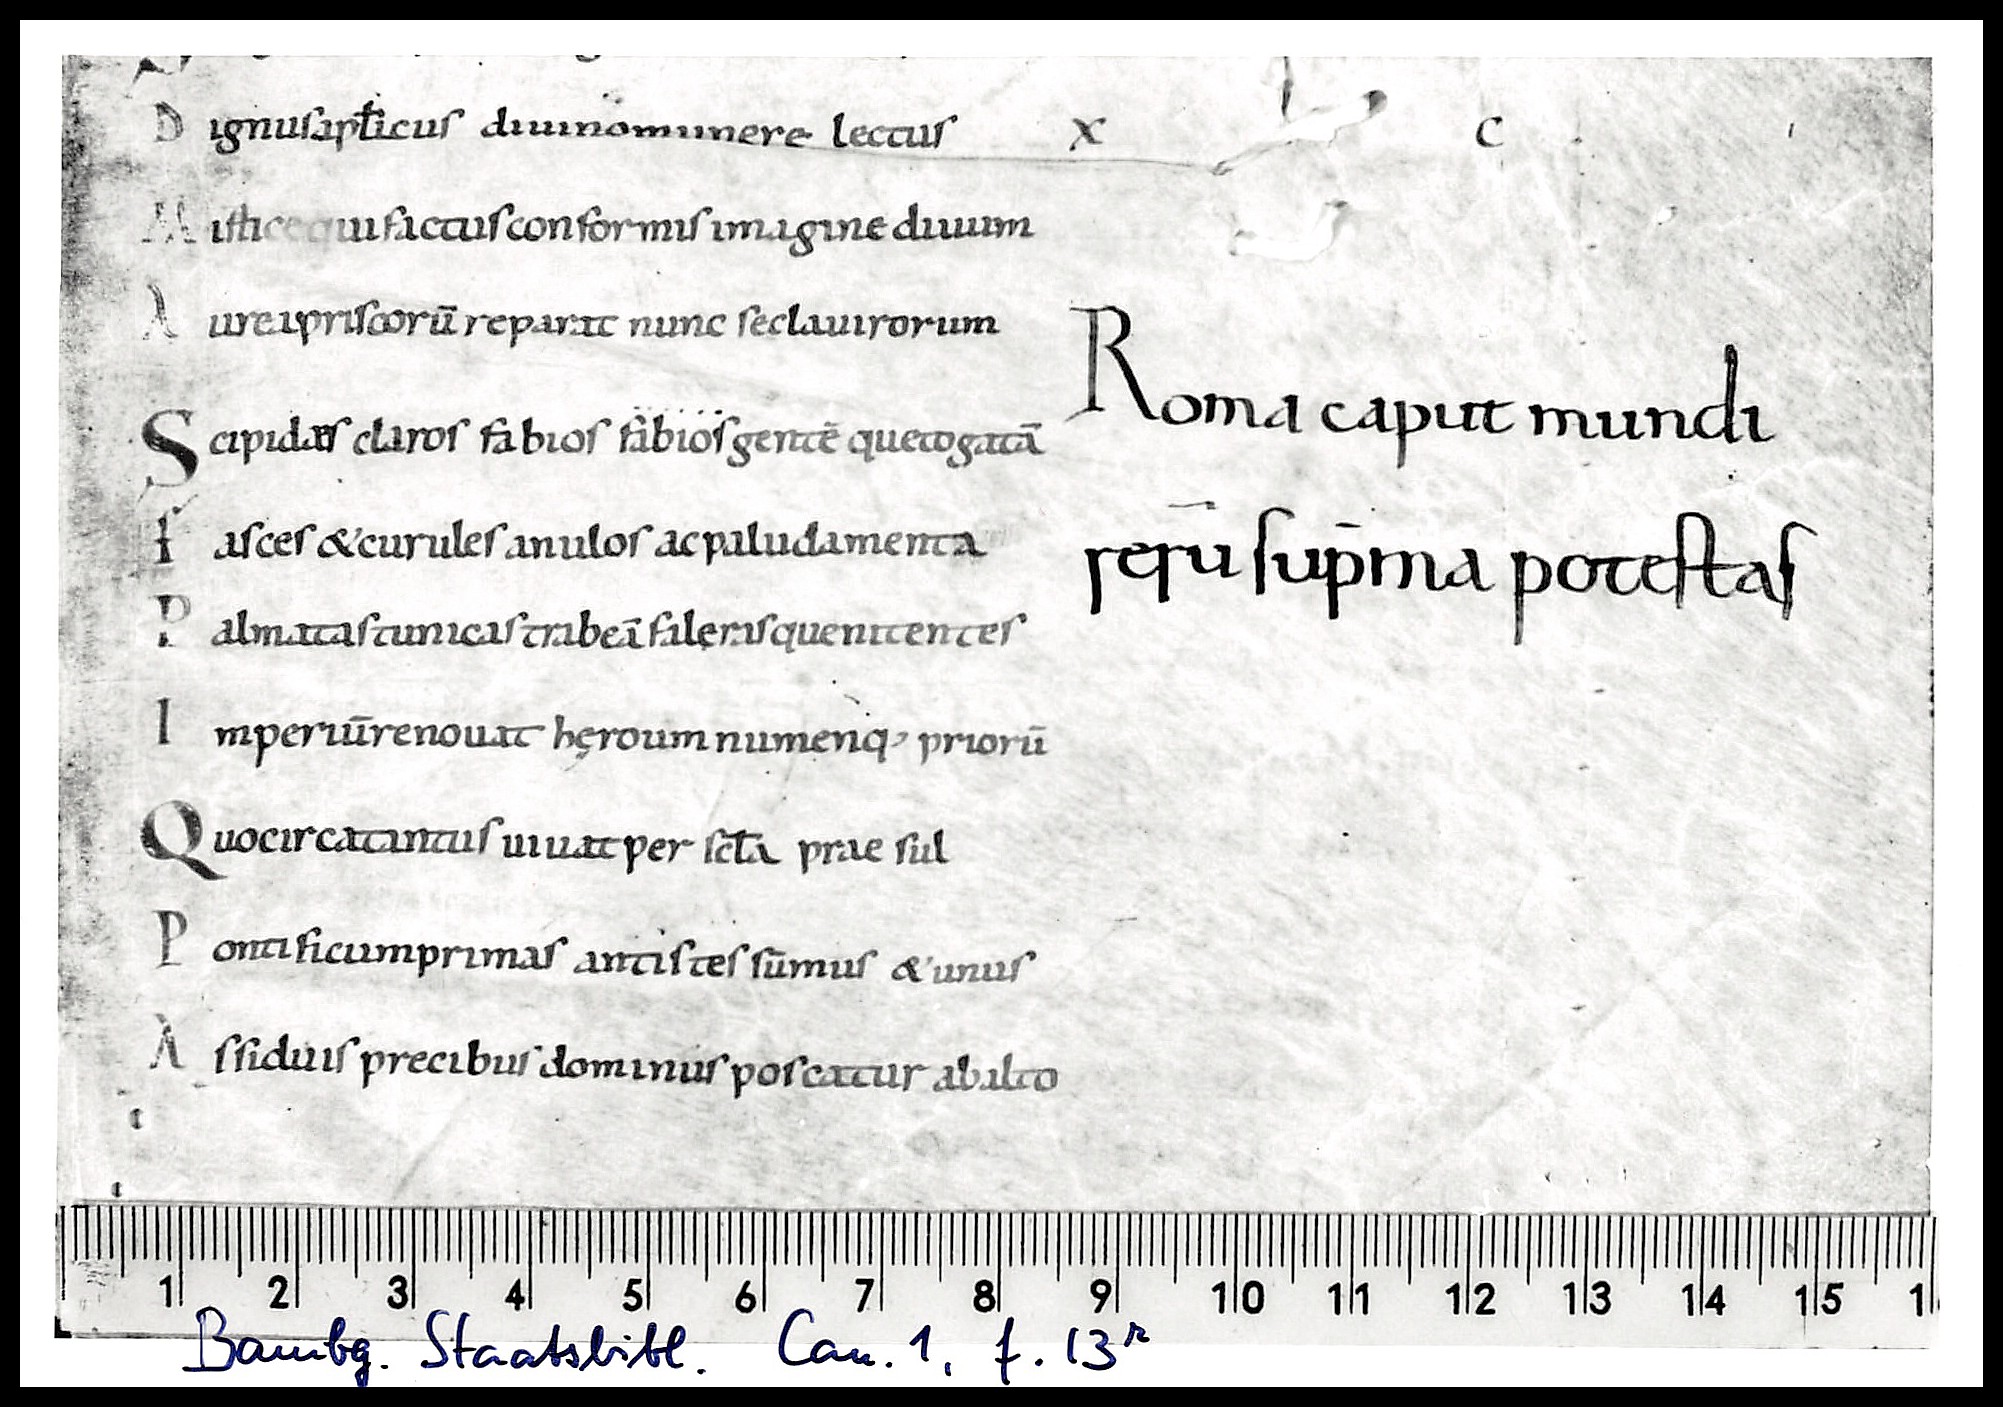 D ignus apl̄icus diuino munere lectus x c
M istice qui factus conformis imagine diuum
A urea priscorū reparat nunc secla uirorum
S cipidas claros fabios fabios gentē que togatā
F asces & curules anulos ac paludamenta
P almatas tunicas trabeā faleras que nitentes
I mperiū renouat hęroum numenq; priorū
Q uocirca tantus uiuat per scl̄a prae sul
P ontificum primas antistes sūmus & unus
A ssiduis precibus dominus poscatur ab alto
Roma caput mundi
rerū sup̄ma potestas
1 2 3 4 5 6 7 8 9 10 11 12 13 14 15 1
Bambg. Staatsbibl. Can. 1, f. 13r